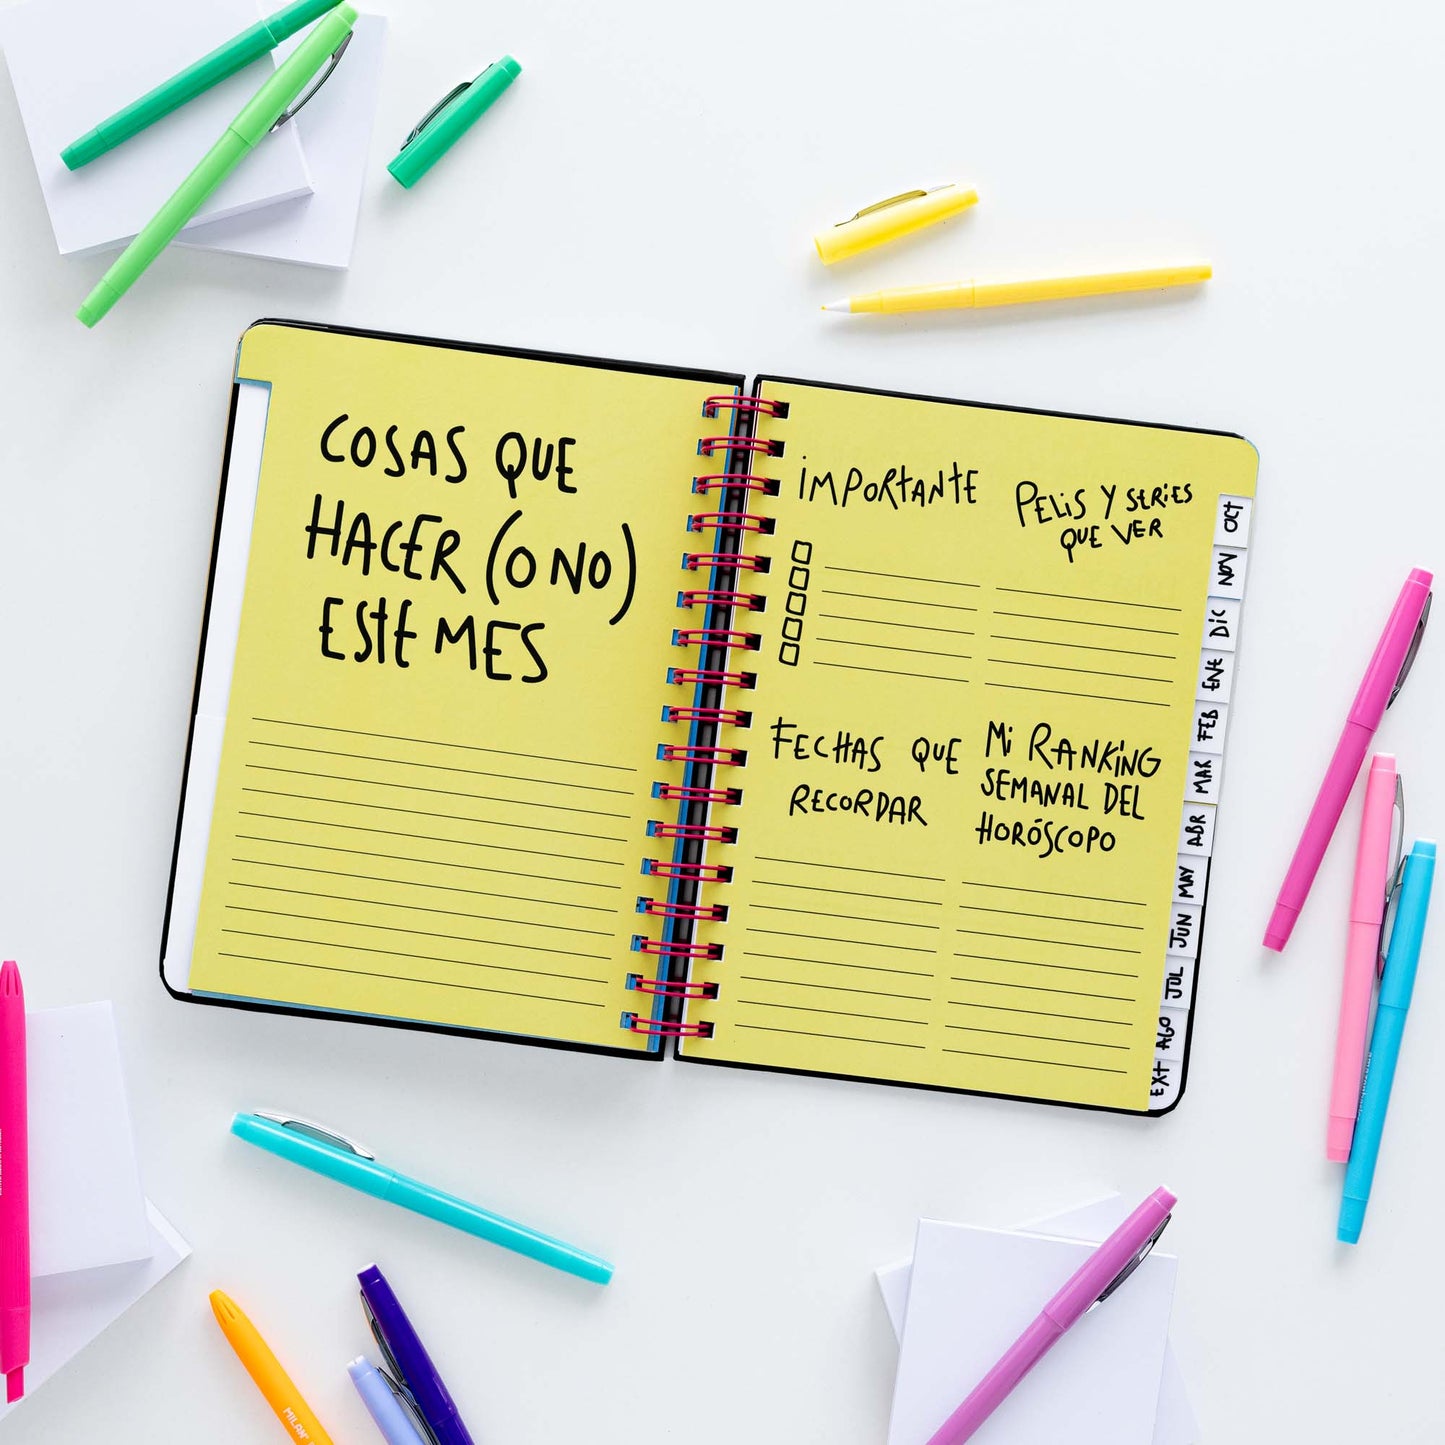 COSAS QUE
HACER (O NO)
ESTE MES
IMPORTANTE
PELIS Y SERIES
QUE VER
FECHAS QUE
RECORDAR
Mi RANKING
SEMANAL DEL
HORÓSCOPO
OCT
NOV
DIC
ENE
FEB
MAR
ABR
MAY
JUN
JUL
AGO
EXT
MILAN